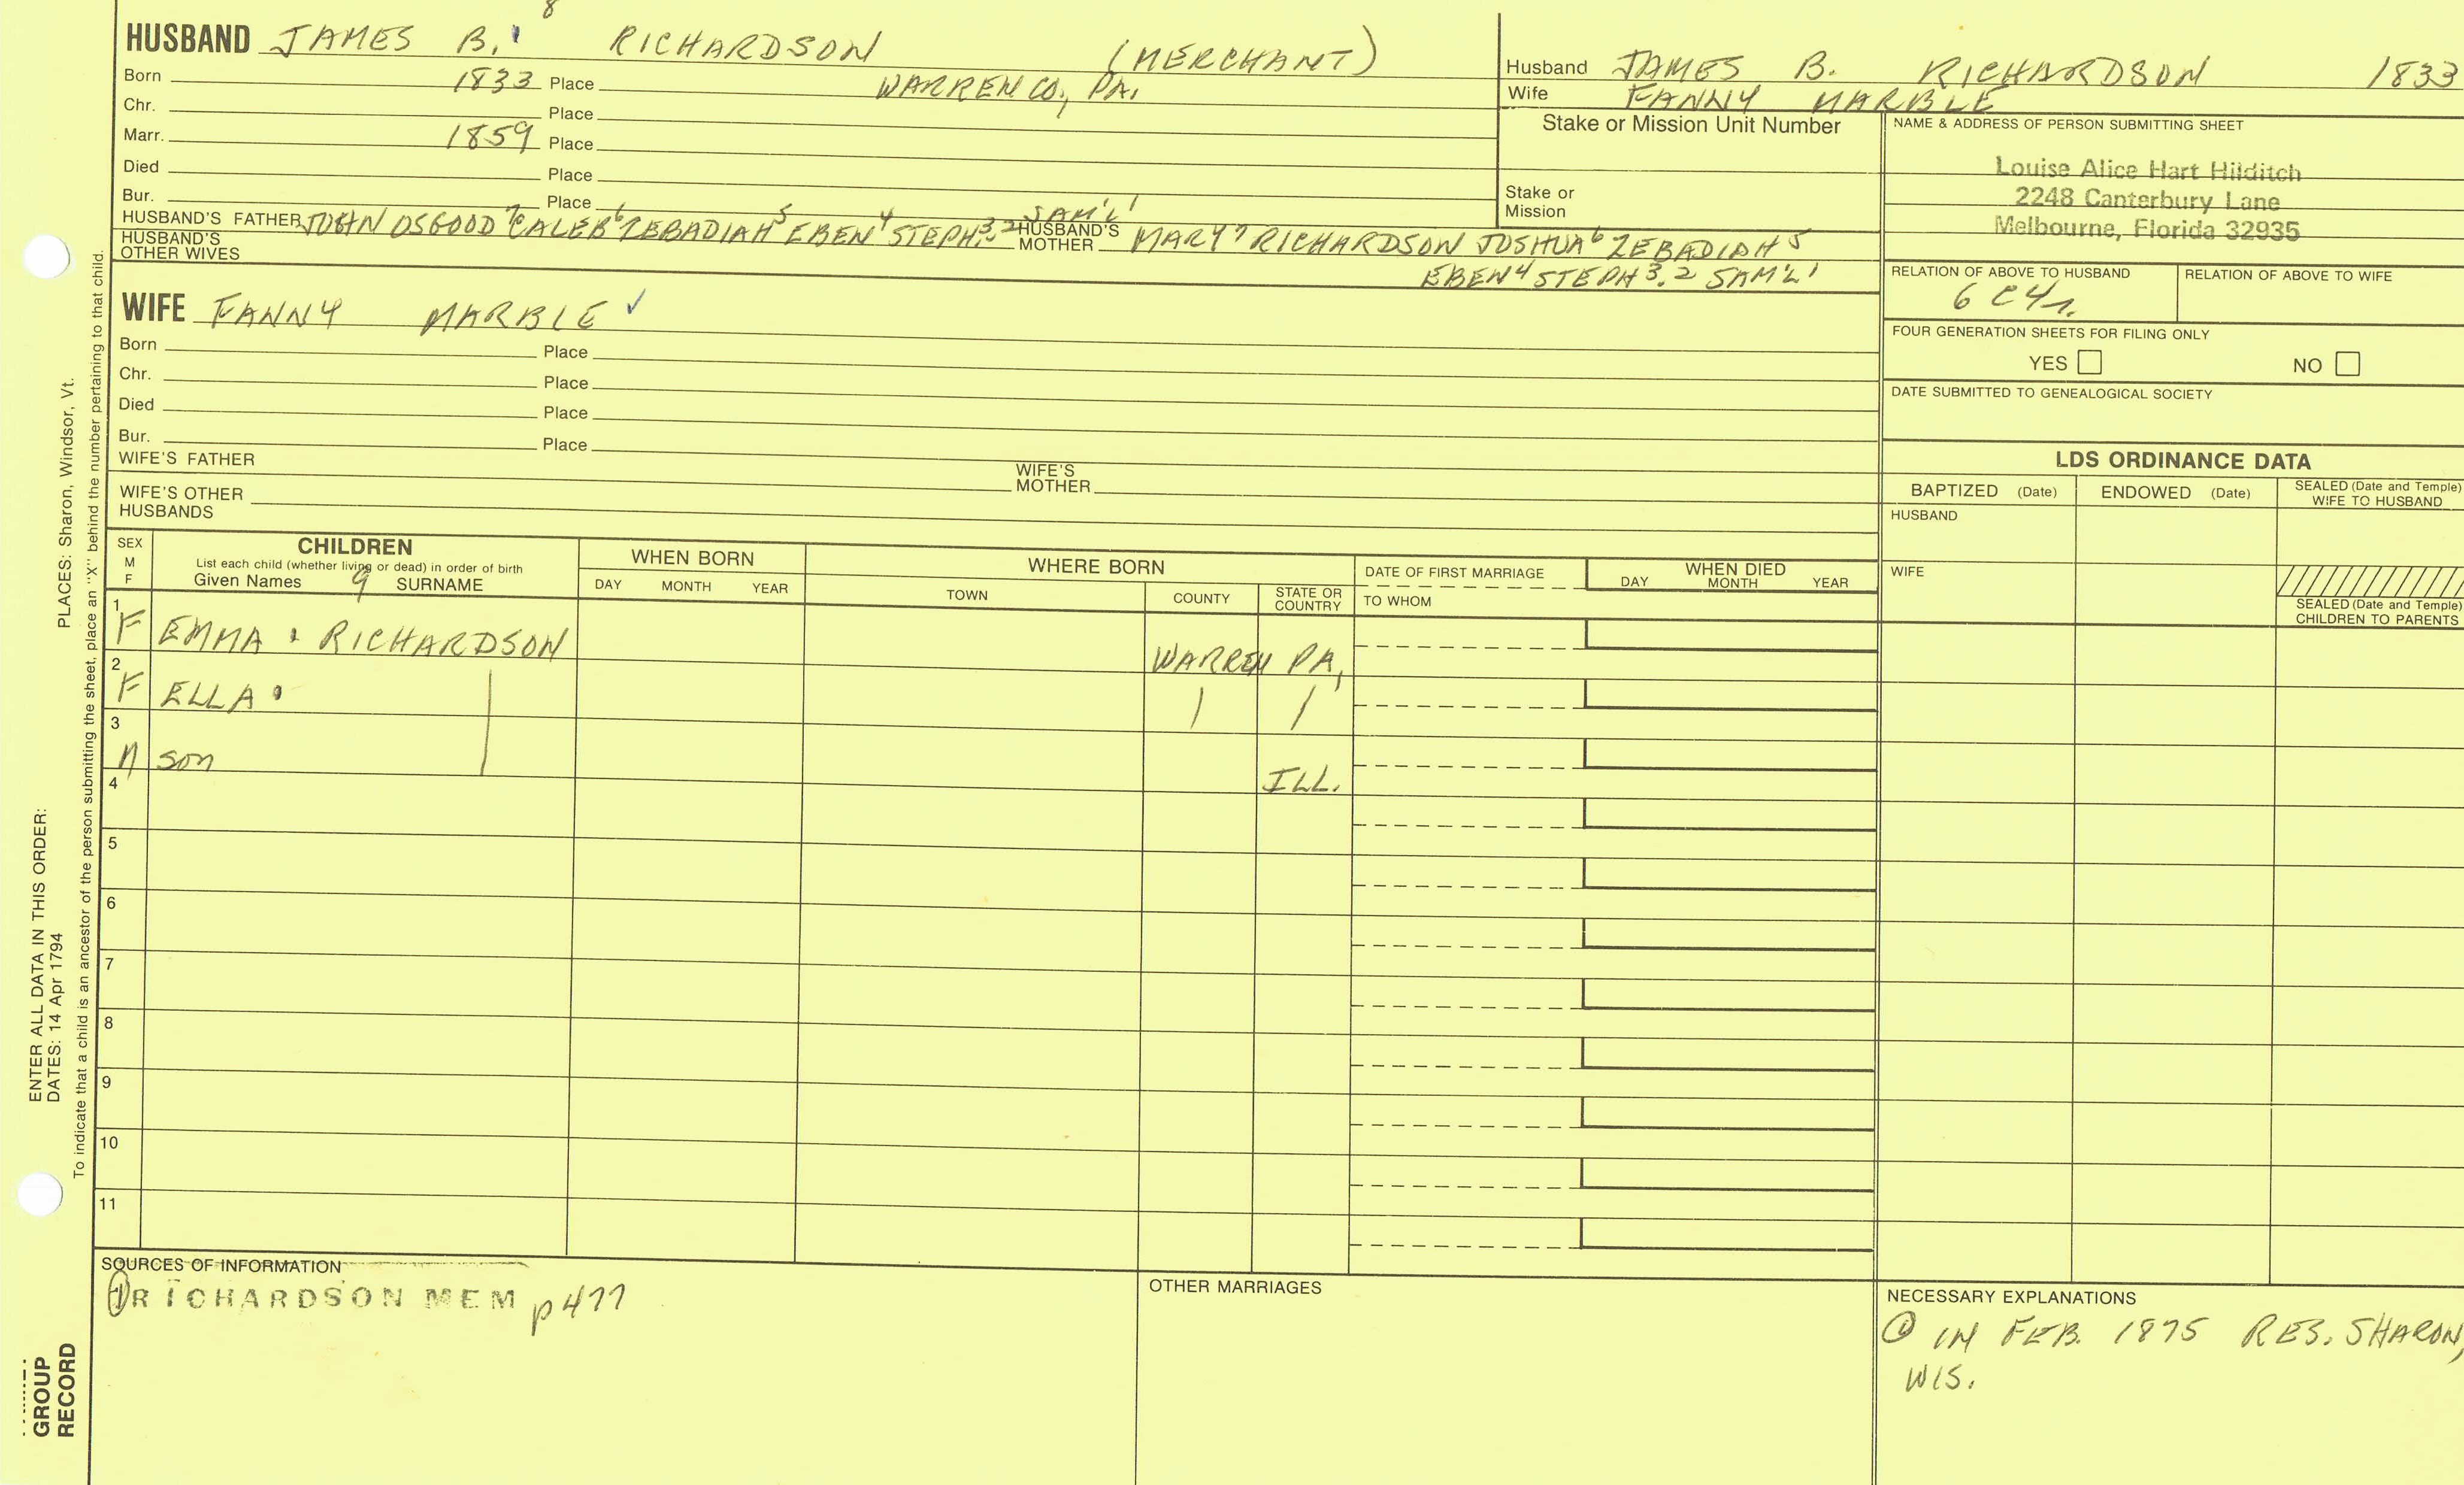 8
HUSBAND JAMES B. RICHARDSON (MERCHANT)
Born 1833 Place WARREN CO, PA.
Chr. Place
Marr. 1859 Place
Died Place
Bur. Place
HUSBAND'S FATHER JOHN OSGOOD 7 CALEB 6 ZEBADIAH 5 EBEN 4 STEPH 3.2 SAM'L 1
HUSBAND'S MOTHER MARY 7 RICHARDSON JOSHUA 6 ZEBADIAH 5
EBEN 4 STEPH 3.2 SAM'L 1
HUSBAND'S OTHER WIVES
WIFE FANNY MARBLE ✓
Born Place
Chr. Place
Died Place
Bur. Place
WIFE'S FATHER WIFE'S MOTHER
WIFE'S OTHER HUSBANDS
Husband JAMES B. RICHARDSON 1833
Wife FANNY MARBLE
Stake or Mission Unit Number
Stake or Mission
NAME & ADDRESS OF PERSON SUBMITTING SHEET
Louise Alice Hart Hilditch
2248 Canterbury Lane
Melbourne, Florida 32935
RELATION OF ABOVE TO HUSBAND RELATION OF ABOVE TO WIFE
6 C 4 r.
FOUR GENERATION SHEETS FOR FILING ONLY
YES NO
DATE SUBMITTED TO GENEALOGICAL SOCIETY
LDS ORDINANCE DATA
BAPTIZED (Date) ENDOWED (Date) SEALED (Date and Temple) WIFE TO HUSBAND
HUSBAND
WIFE
SEALED (Date and Temple) CHILDREN TO PARENTS
SEX M F
CHILDREN
List each child (whether living or dead) in order of birth
Given Names 9 SURNAME
WHEN BORN
DAY MONTH YEAR
WHERE BORN
TOWN COUNTY STATE OR COUNTRY
DATE OF FIRST MARRIAGE
TO WHOM
WHEN DIED
DAY MONTH YEAR
1 F EMMA RICHARDSON WARREN PA.
2 F ELLA
3 M son ILL.
4
5
6
7
8
9
10
11
SOURCES OF INFORMATION
① RICHARDSON MEM p 477
OTHER MARRIAGES
NECESSARY EXPLANATIONS
① IN FEB. 1875 RES. SHARON,
WIS.
ENTER ALL DATA IN THIS ORDER:
DATES: 14 Apr 1794
PLACES: Sharon, Windsor, Vt.
To indicate that a child is an ancestor of the person submitting the sheet, place an "X" behind the number pertaining to that child.
GROUP
RECORD